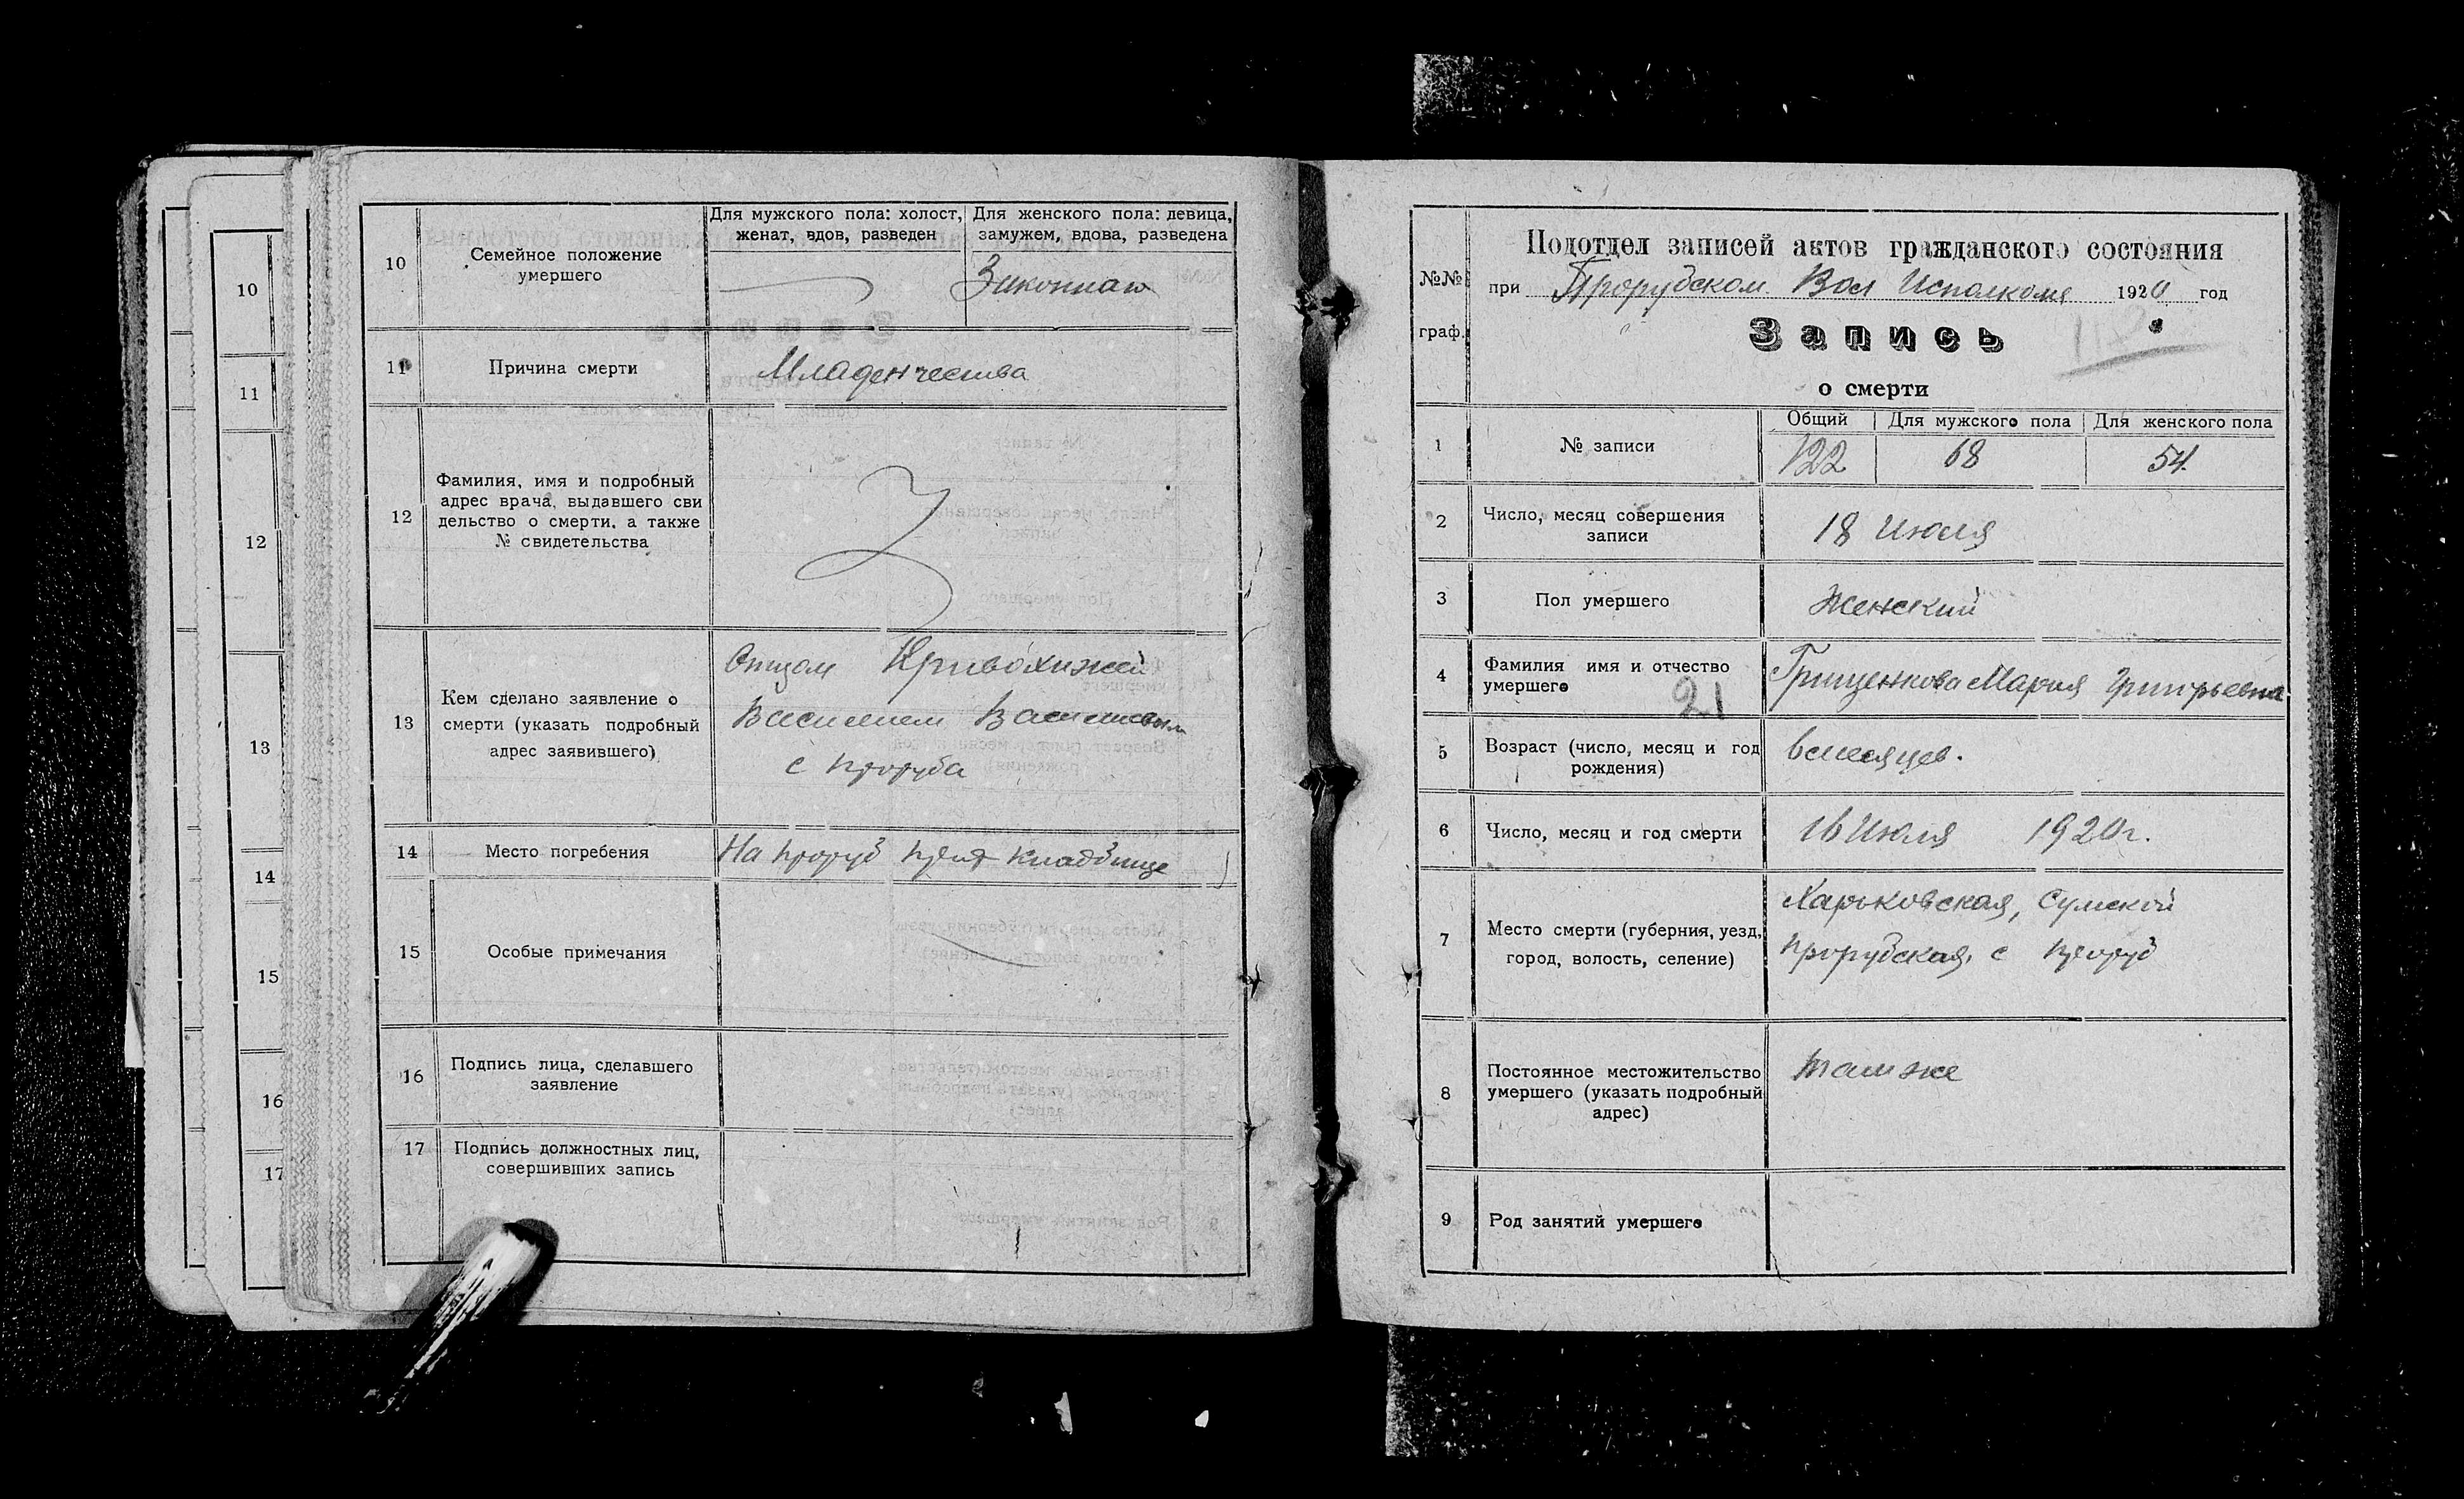 10
11
12
13
14
15
16
17
10
Семейное положение
умершего
Для мужского пола: холост,
женат, вдов, разведен
Для женского пола: девица,
замужем, вдова, разведена
Законная
11
Причина смерти
Младенчества
12
Фамилия, имя и подробный
адрес врача, выдавшего сви
дельство о смерти, а также
№ свидетельства
13
Кем сделано заявление о
смерти (указать подробный
адрес заявившего)
Отцом Кривохижей
Василием Васильевым
с Проруба
14
Место погребения
На Проруб кладбище
15
Особые примечания
16
Подпись лица, сделавшего
заявление
17
Подпись должностных лиц,
совершивших запись
№№
граф.
Подотдел записей актов гражданского состояния
при Прорубском Вол Исполкоме 1920 год
Запись
о смерти
1
№ записи
Общий
Для мужского пола
Для женского пола
122
68
54
2
Число, месяц совершения
записи
18 Июля
3
Пол умершего
Женский
4
Фамилия имя и отчество
умершего
21
Грищенкова Мария Григорьевна
5
Возраст (число, месяц и год
рождения)
6 месяцев.
6
Число, месяц и год смерти
16 Июля 1920 г.
7
Место смерти (губерния, уезд,
город, волость, селение)
Харьковская, Сумской
Прорубская, с Проруб
8
Постоянное местожительство
умершего (указать подробный
адрес)
там же
9
Род занятий умершего